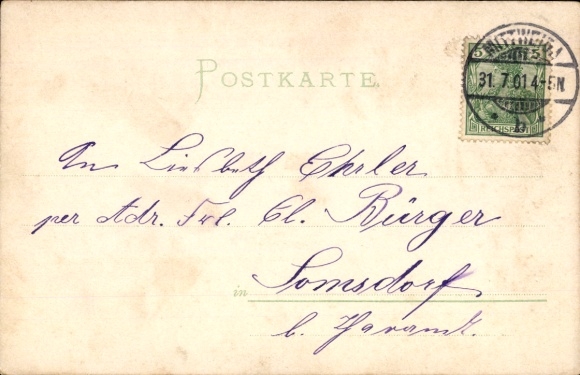 POSTKARTE.
5 5
MITTWEIDA
31.7.01 4-5N
b
REICHSPOST
An Liesbeth Ehrler
per Adr. Frl. Cl. Bürger
in Somsdorf
b. Tharandt.